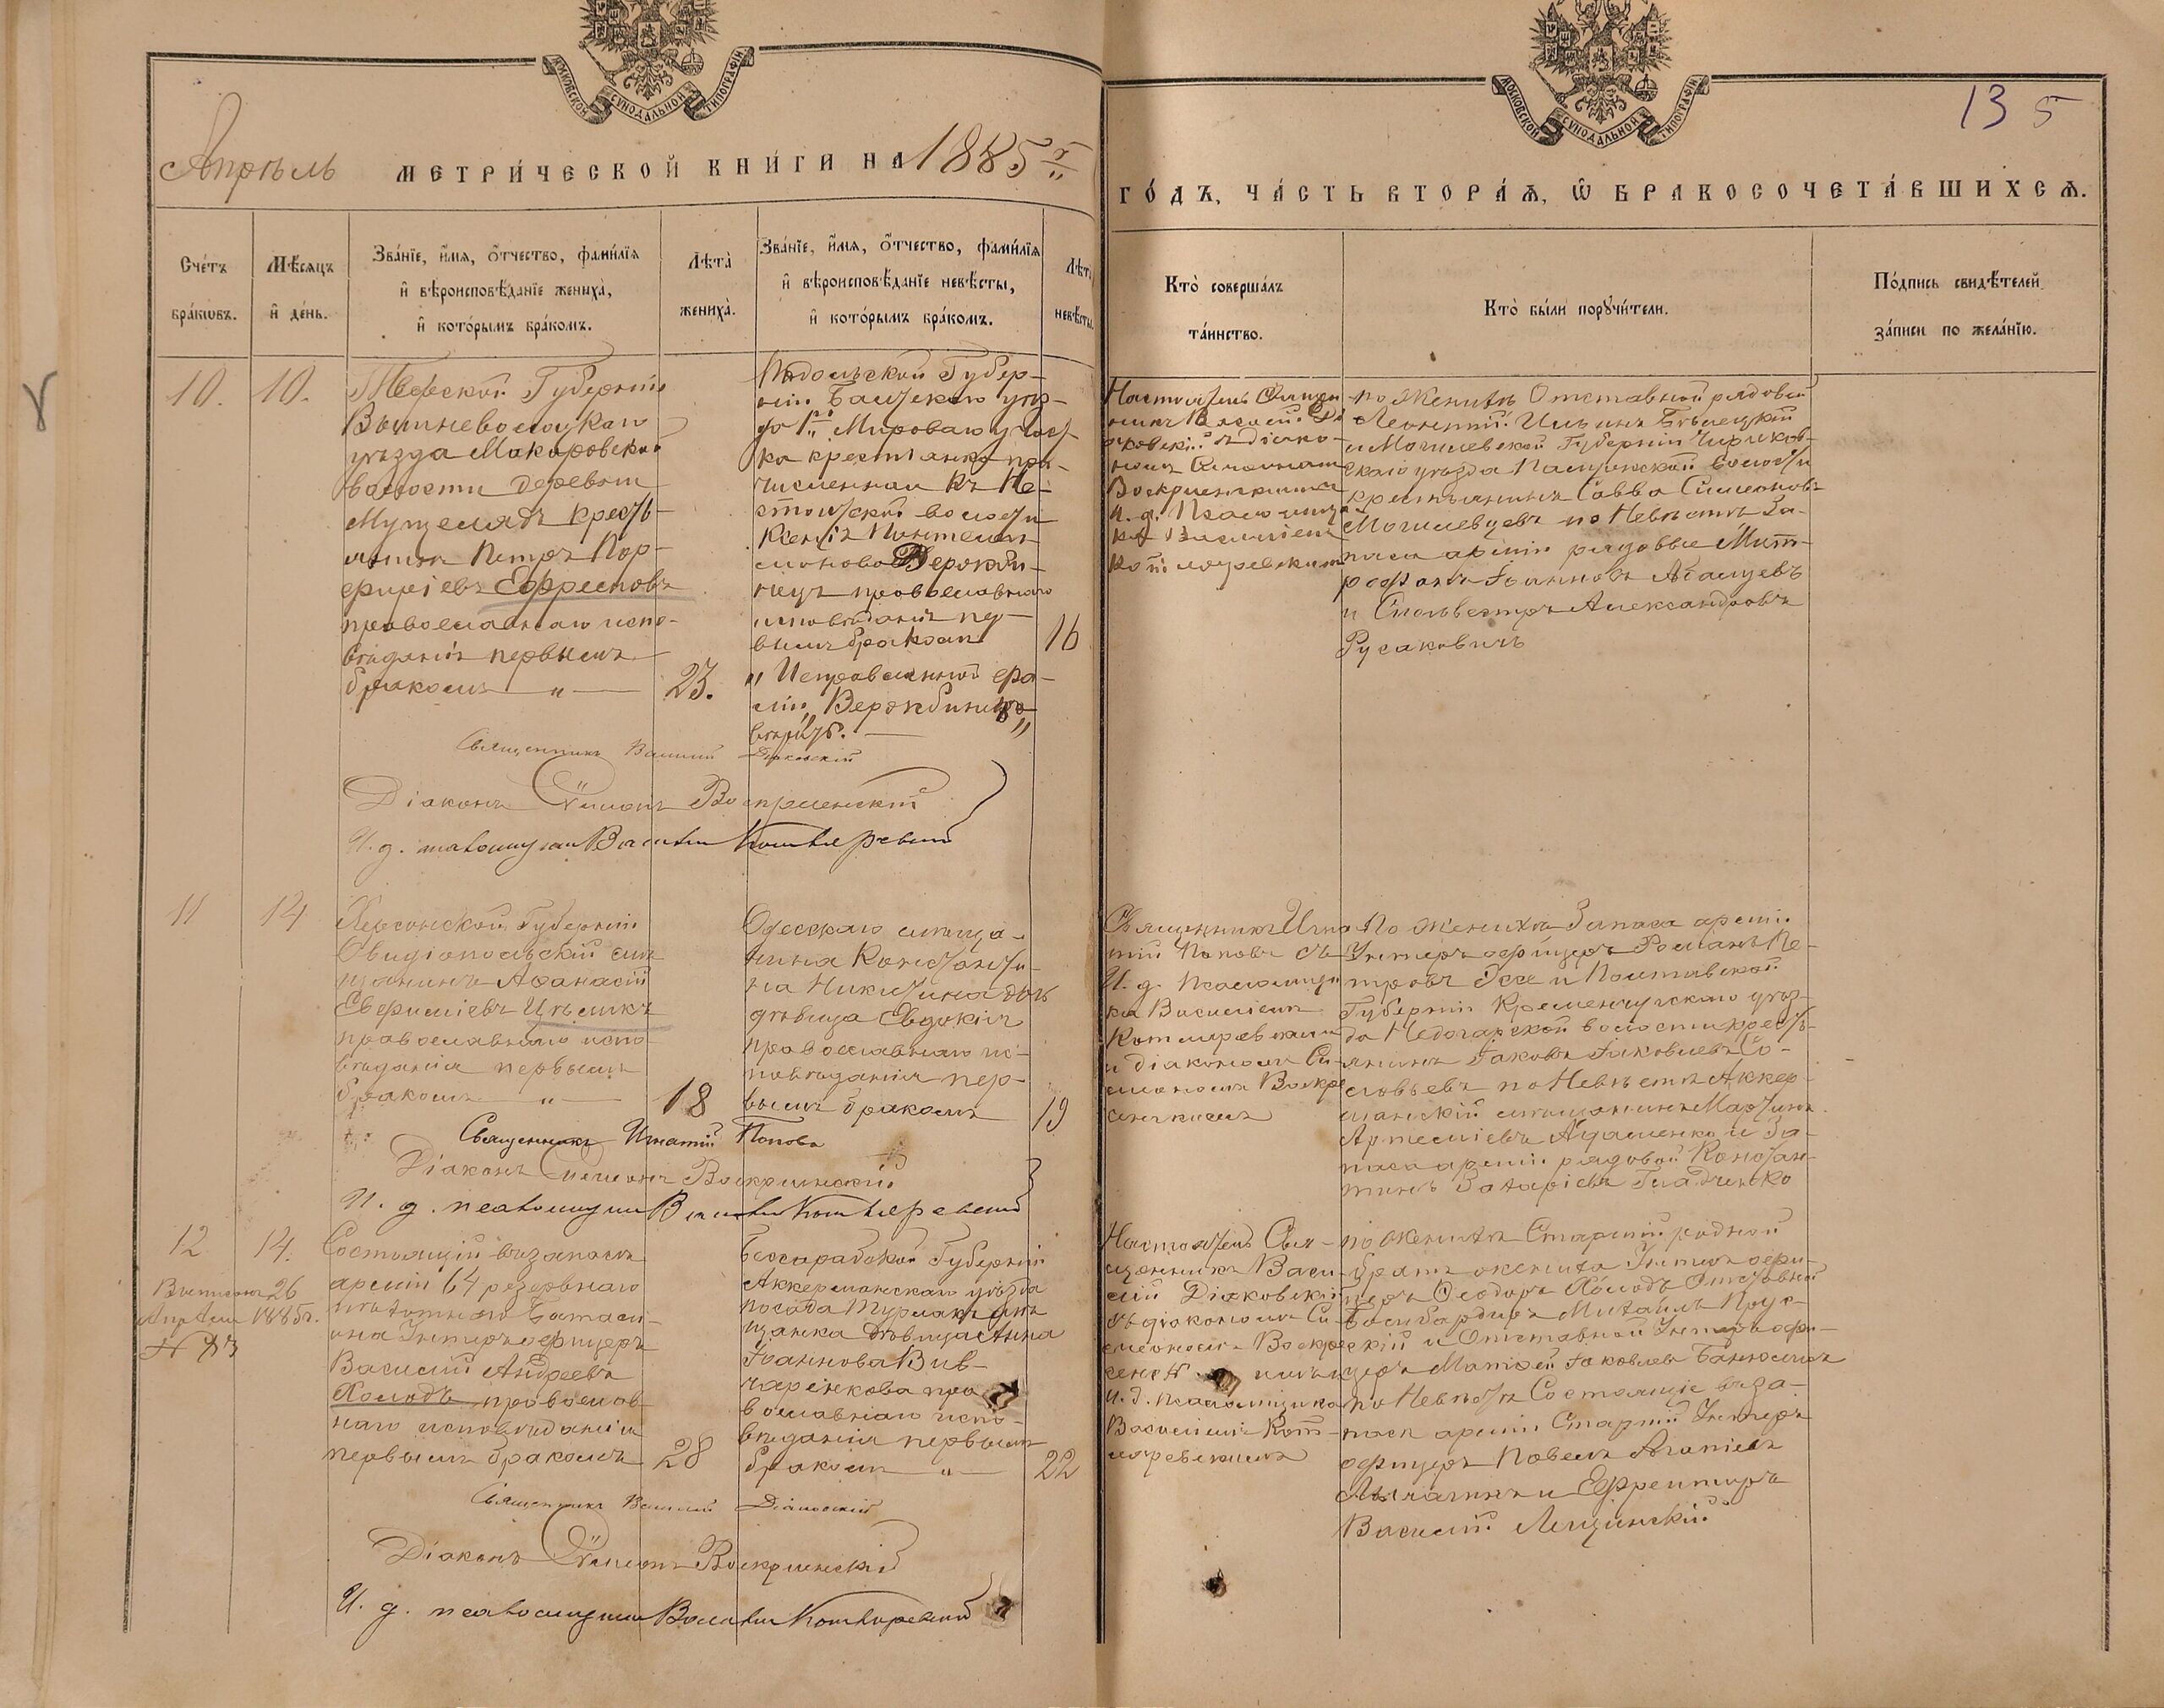 МОСКОВСКОЙ СУНОДАЛЬНОЙ ТИПОГРАФІИ
МОСКОВСКОЙ СУНОДАЛЬНОЙ ТИПОГРАФІИ
13 5
Апрѣль МЕТРИ́ЧЕСКОЙ КНИ́ГИ НА 1885 г.
ГО́ДЪ, ЧА́СТЬ ВТОРА́Ѧ, Ѿ БРАКОСОЧЕТА́ВШИХСѦ.
Сче́тъ бра́кѡвъ.
Мѣ́сѧцъ и҆ де́нь.
Зва́нїе, и҆́мѧ, ѻ҆́тчество, фами́лїѧ
и҆ вѣроисповѣ́данїе жениха̀,
и҆ кото́рымъ бра́комъ.
Лѣта̀ жениха̀.
Зва́нїе, и҆́мѧ, ѻ҆́тчество, фами́лїѧ
и҆ вѣроисповѣ́данїе невѣ́сты,
и҆ кото́рымъ бра́комъ.
Лѣта̀ невѣ́сты.
Кто̀ соверша́лъ
та́инство.
Кто̀ бы́ли порꙋчи́тели.
По́дпись свидѣ́телей
за́писи по жела́нїю.
10. 10.
Тверской Губерніи
Вышневолоцкаго
уѣзда Макаровской
волости деревни
крестья-
нинъ Петръ Пор-
фиріевъ Ефремовъ
православнаго испо-
вѣданія первымъ
бракомъ „ 23.
Подольской Губер-
ніи Балтскаго уѣз-
да 1го Мироваго участ-
ка крестьянка при-
численная къ
волости
Ксенія Пантелеи-
монова
православнаго
исповѣданія пер-
вымъ бракомъ 16
„Исправленной фа-
міліи
вѣрить.
Настоятель Священ-
никъ Василій Дя-
ковскій съ діако-
номъ Симеономъ
Воскресенскимъ
и. д. Псаломщи-
ка Василіемъ
Котляревскимъ
по Женихѣ Отставной рядовой
Леонтій Ильинъ Бѣлецкій
и Могилевской Губерніи Чириков-
скаго уѣзда волости
крестьянинъ Савва Симеоновъ
Могилевцевъ по Невѣстѣ За-
паса арміи рядовые Мит-
рофанъ Іоанновъ
и Сильвестръ Александровъ
Русаковичъ
Священникъ Василій Дяковскій
Діаконъ Симеонъ Воскресенскій
И. д. псаломщика Василій Котляревскій
11 14
Херсонской Губерніи
Овидіопольскій мѣ-
щанинъ Афанасій
Евфиміевъ
православнаго испо-
вѣданія первымъ
бракомъ „ 18
Одесскаго мѣща-
нина Константи-
на Никитина дочь
дѣвица Евдокія
православнаго ис-
повѣданія пер-
вымъ бракомъ 19
Священникъ Игна-
тій Поповъ съ
И. д. Псаломщи-
ка Василіемъ
Котляревскимъ
и діакономъ Си-
меономъ Воскре-
сенскимъ
По Женихѣ Запаса арміи
Унтеръ офицеръ Романъ Пе-
тровъ и Полтавской
Губерніи Кременчугскаго уѣз-
да Недогарской волости кресть-
янинъ Іаковъ Іаковлевъ Со-
ловьевъ по Невѣстѣ Аккер-
манскій мѣщанинъ Мартинъ
Артеміевъ Адаменко и За-
паса арміи рядовой Констан-
тинъ Захаріевъ Гладченко
Священникъ Игнатій Поповъ
Діаконъ Симеонъ Воскресенскій
И. д. псаломщика Василій Котляревскій
12 14.
26
Апрѣля 1885 г.
№ 83
Состоящій въ запасѣ
арміи 64 резервнаго
пѣхотнаго баталі-
она Унтеръ офицеръ
Василій Андреевъ
Холодъ православ-
наго исповѣданія
первымъ бракомъ 28
Бессарабской Губерніи
Аккерманскаго уѣзда
посада Турлакъ мѣ-
щанка дѣвица Анна
Іоаннова Вив-
чаренкова пра-
вославнаго испо-
вѣданія первымъ
бракомъ „ 22
Настоятель Свя-
щенникъ Васи-
лій Дяковскій
съ діакономъ Си-
меономъ Воскре-
сенскимъ и
и. д. псаломщика
Василіемъ Кот-
ляревскимъ
по Женихѣ Старшій родной
братъ жениха Унтеръ офи-
церъ Ѳеодоръ Холодъ Отставной
Бомбардиръ Михаилъ
и Отставной Унтеръ офи-
церъ Матѳей Іаковлевъ
по Невѣстѣ Состоящіе въ за-
пасѣ арміи Старшій Унтеръ
офицеръ Павелъ
и Ефрейторъ
Василій Лещинскій
Священникъ Василій Дяковскій
Діаконъ Симеонъ Воскресенскій
И. д. псаломщика Василій Котляревскій